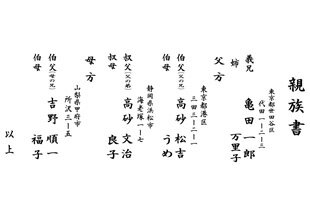 親族書
東京都世田谷区
代田一ー二ー三
義兄　亀田　一郎
姉　万里子
父方
東京都港区
三田三ー二ー一
伯父(父の兄)　高砂　松吉
伯母　うめ
静岡県浜松市
老塚一ー七
叔父(父の弟)　高砂　文治
叔母　良子
母方
山梨県甲府市
所沢三ー五
伯父(母の兄)　吉野　順一
伯母　福子
以上